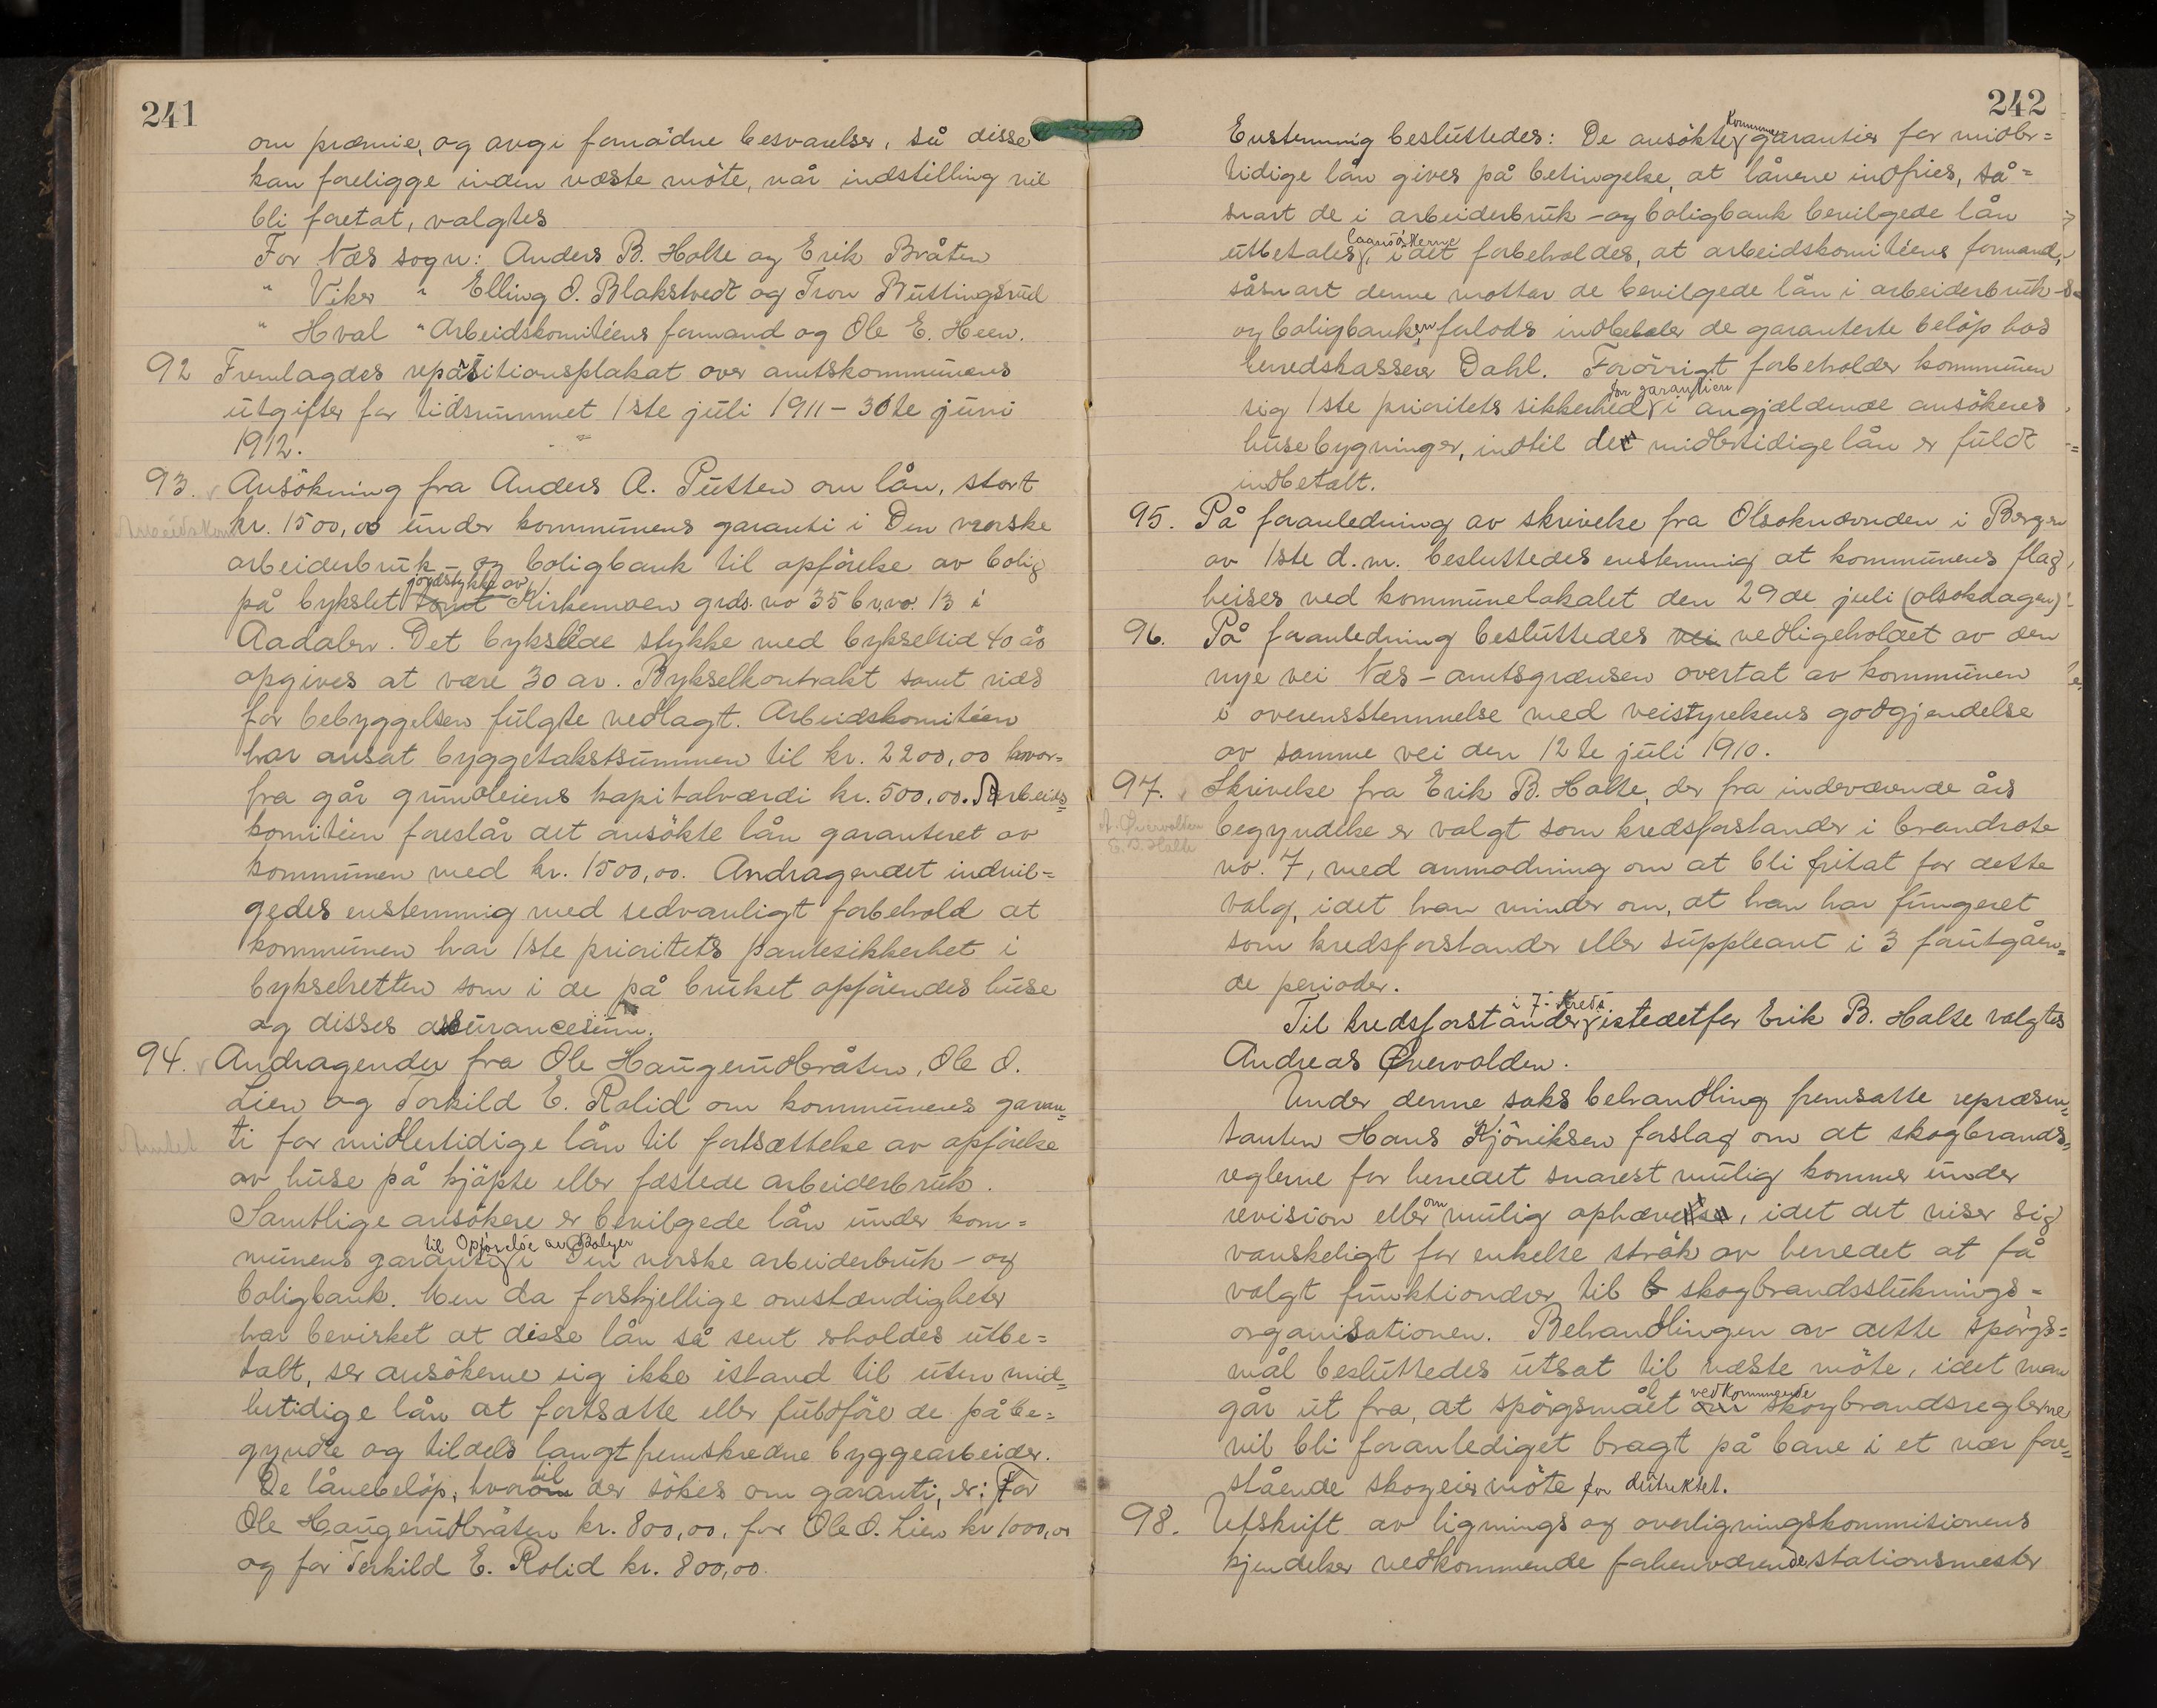 241
om præmie, og avgi fornødne besvarelser, så disse
kan foreligge inden næste möte, når indstilling vil
bli foretat, valgtes
For Næs sogn: Anders B. Holte og Erik Bråten
" Viker " Elling O. Blakstvedt og Tron Buttingsrud
" Hval " Arbeidskomitéens formand og Ole E. Heen.
92 Fremlagdes repartitionsplakat over amtskommunens
utgifter for tidsrummet 1ste juli 1911 - 30te juni
1912.
93. Ansökning fra Anders A. Putten om lån, stort
kr. 1500,00 under kommunens garanti i Den norske
arbeiderbruk- og boligbank til opförelse av bolig
jordstykke av
på bykslet tomt Kirkemoen grds. no 35 br.no. 13 i
Aadalen. Det bykslede stykke med bykseltid 40 år
opgives at være 30 ar. Bykselkontrakt samt rids
for bebyggelsen fulgte vedlagt. Arbeidskomitéen
har ansat byggetakstsummen til kr. 2200,00 hvor=
fra går grundleiens kapitalværdi kr. 500,00. Arbeids=
komitéen foreslår det ansökte lån garanteret av
kommunen med kr. 1500,00. Andragendet indvil=
gedes enstemmig med sedvanligt forbehold at
kommunen har 1ste prioritets pantesikkerhet i
bykselretten som i de på bruket opförendes huse
og disses assurancesum.
94. Andragender fra Ole Haugerudbråten, Ole O.
Lien og Torkild E. Rolid om kommunens garan=
ti for midlertidige lån til fortsættelse av opförelse
av huse på kjöpte eller fæstede arbeiderbruk.
Samtlige ansökere er bevilgede lån under kom=
til Opförelse av Boliger
munens garanti i Den norske arbeiderbruk- og
boligbank. Men da forskjellige omstændigheter
har bevirket at disse lån så sent erholdes utbe=
talt, ser ansökerne sig ikke istand til uten mid=
lertidige lån at fortsætte eller fuldföre de påbe=
gyndte og tildels langt fremskredne byggearbeider.
til
De lånebelöp, hvorom der sökes om garanti, er: For
Ole Haugerudbråten kr. 800,00, for Ole O. Lien kr 1000,00
og for Torkild E. Rolid kr. 800,00.
242
Kommune-
Enstemmig besluttedes: De ansökte garantier for midler=
tidige lån gives på betingelse, at lånene indfries, så=
snart de i arbeiderbruk- og boligbank bevilgede lån
utbetales, idet forbeholdes, at arbeidskomitéens formand,
såsnart denne mottar de bevilgede lån i arbeiderbruk-
og boligbanken, forlods indbetaler de garanterte belöp hos
herredskasserer Dahl. Forövrigt forbeholder kommunen
for garantien
sig 1ste prioritets sikkerhed i angjældende ansökeres
husebygninger, indtil det midlertidige lån er fuldt
indbetalt.
95. På foranledning av skrivelse fra Olsoknævnden i Bergen
av 1ste d.m. besluttedes enstemmig at kommunens flag
heises ved kommunelokalet den 29de juli (olsokdagen)
96. På foranledning besluttedes vei vedligeholdet av den
nye vei Næs - amtsgrænsen overtat av kommunen
i overensstemmelse med veistyrelsens godkjendelse
av samme vei den 12te juli 1910.
97. Skrivelse fra Erik B. Holte, der fra indeværende års
A. Øvervolden
E. B. Holte
begyndelse er valgt som kredsforstander i brandrote
no. 7, med anmodning om at bli fritat for dette
valg, idet han minder om, at han har fungeret
som kredsforstander eller suppleant i 3 forutgåen=
de perioder.
i 7. Kreds
Til kredsforstander istedetfor Erik B. Holte valgtes
Andreas Øvervolden.
Under denne saks behandling fremsatte repræsen=
tanten Hans Kjöniksen forslag om at skogbrands=
reglerne for herredet snarest mulig kommer under
om
revision eller mulig ophævelse, idet det viser sig
vanskeligt for enkelte strök av herredet at få
valgt funktionærer til b skogbrandsluknings=
organisationen. Behandlingen av dette spörgs=
mål besluttedes utsat til næste möte, idet man
vedkommende
går ut fra, at spörgsmålet om skogbrandsreglerne
vil bli foranlediget bragt på bane i et nær fore=
stående skogeiermöte for distriktet.
98. Utskrift av lignings og overligningskommisionens
kjendelser vedkommende forhenværende stationsmester